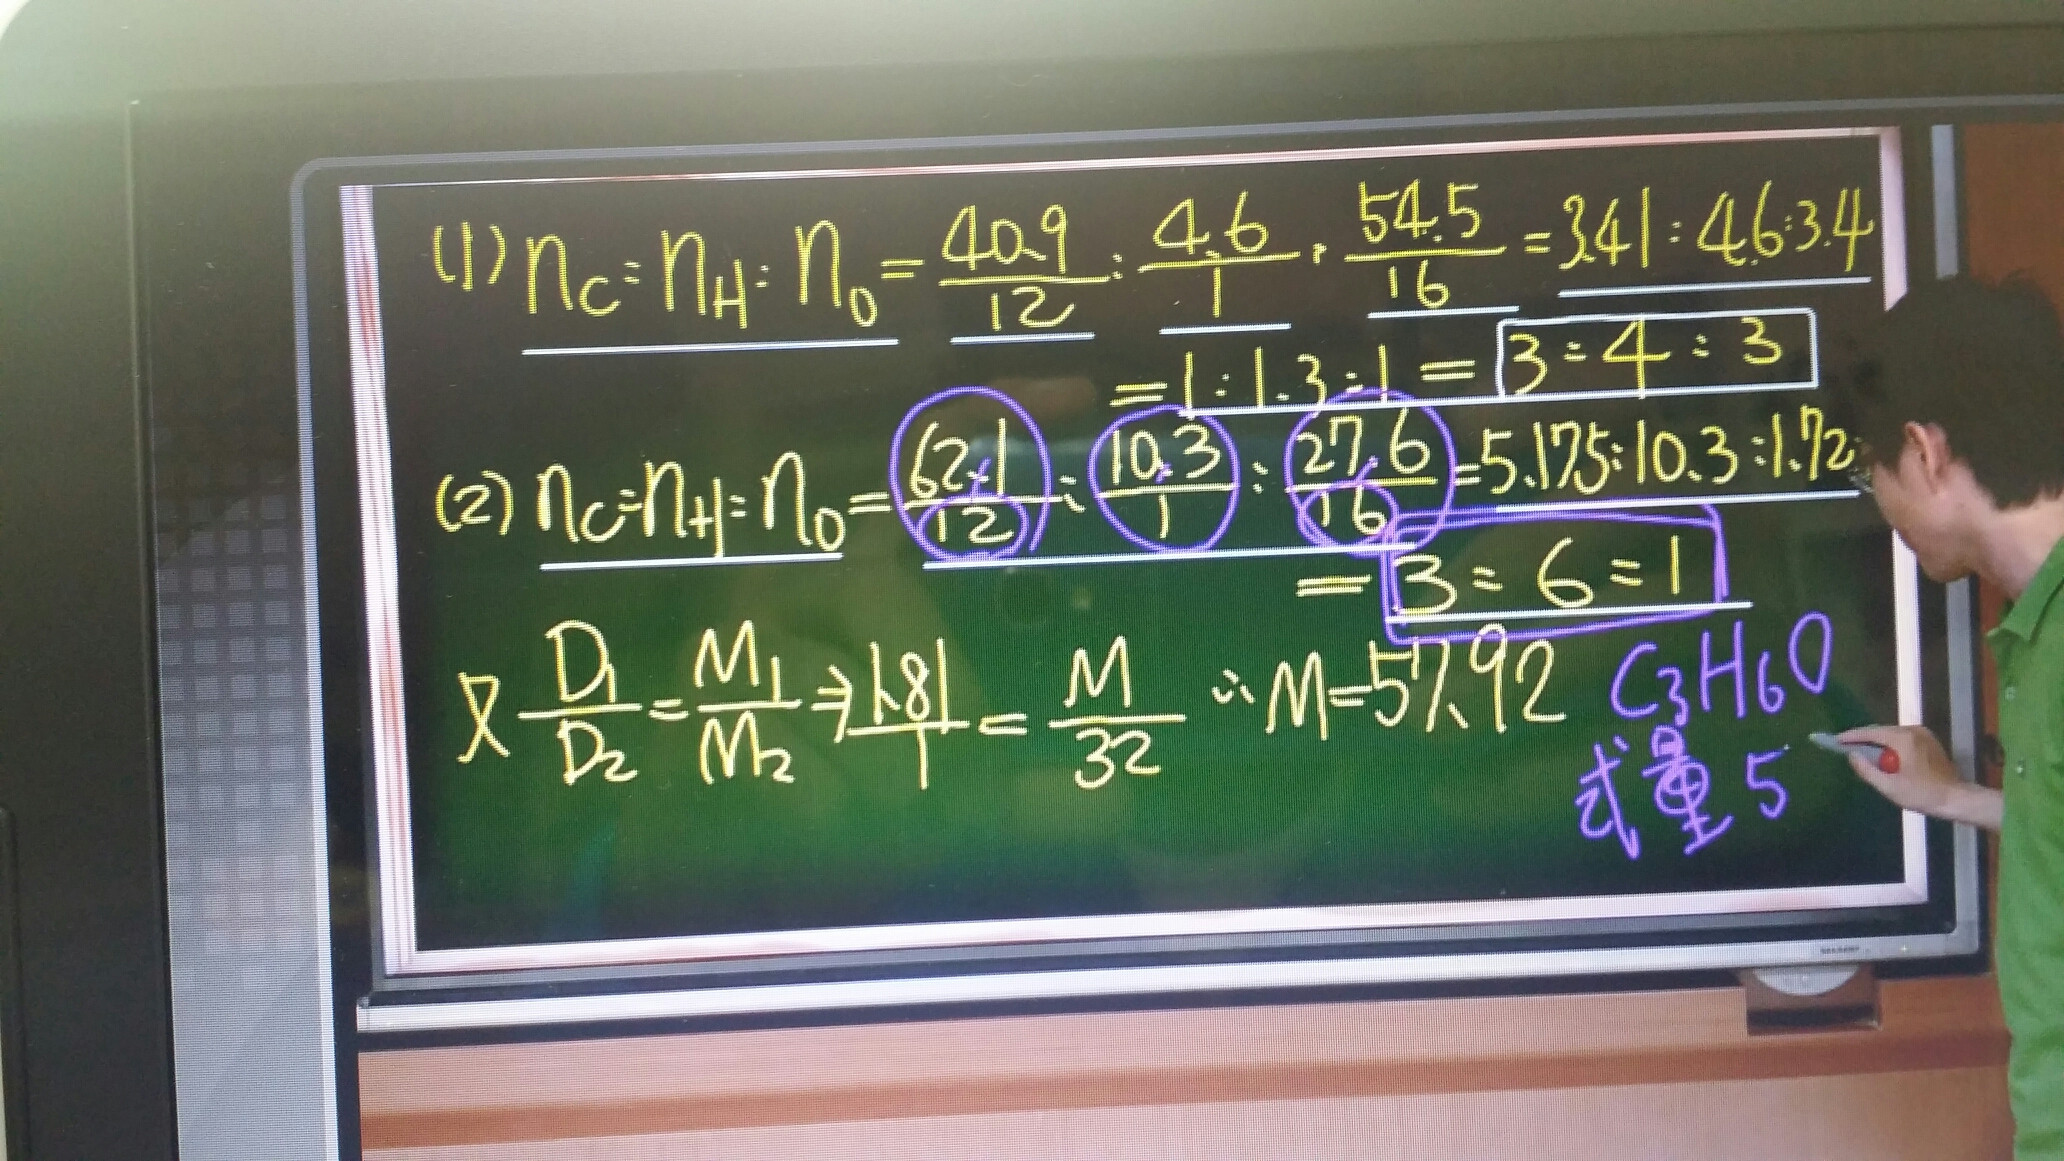 (1) nC : nH : nO = 40.9/12 : 4.6/1 : 54.5/16 = 3.41 : 4.6 : 3.4
= 1 : 1.3 : 1 = 3 : 4 : 3
(2) nC : nH : nO = 62.1/12 : 10.3/1 : 27.6/16 = 5.175 : 10.3 : 1.72
= 3 : 6 : 1
又 D1/D2 = M1/M2 ⇒ 1.81/1 = M/32 ∴ M = 57.92 C3H6O
式量 5